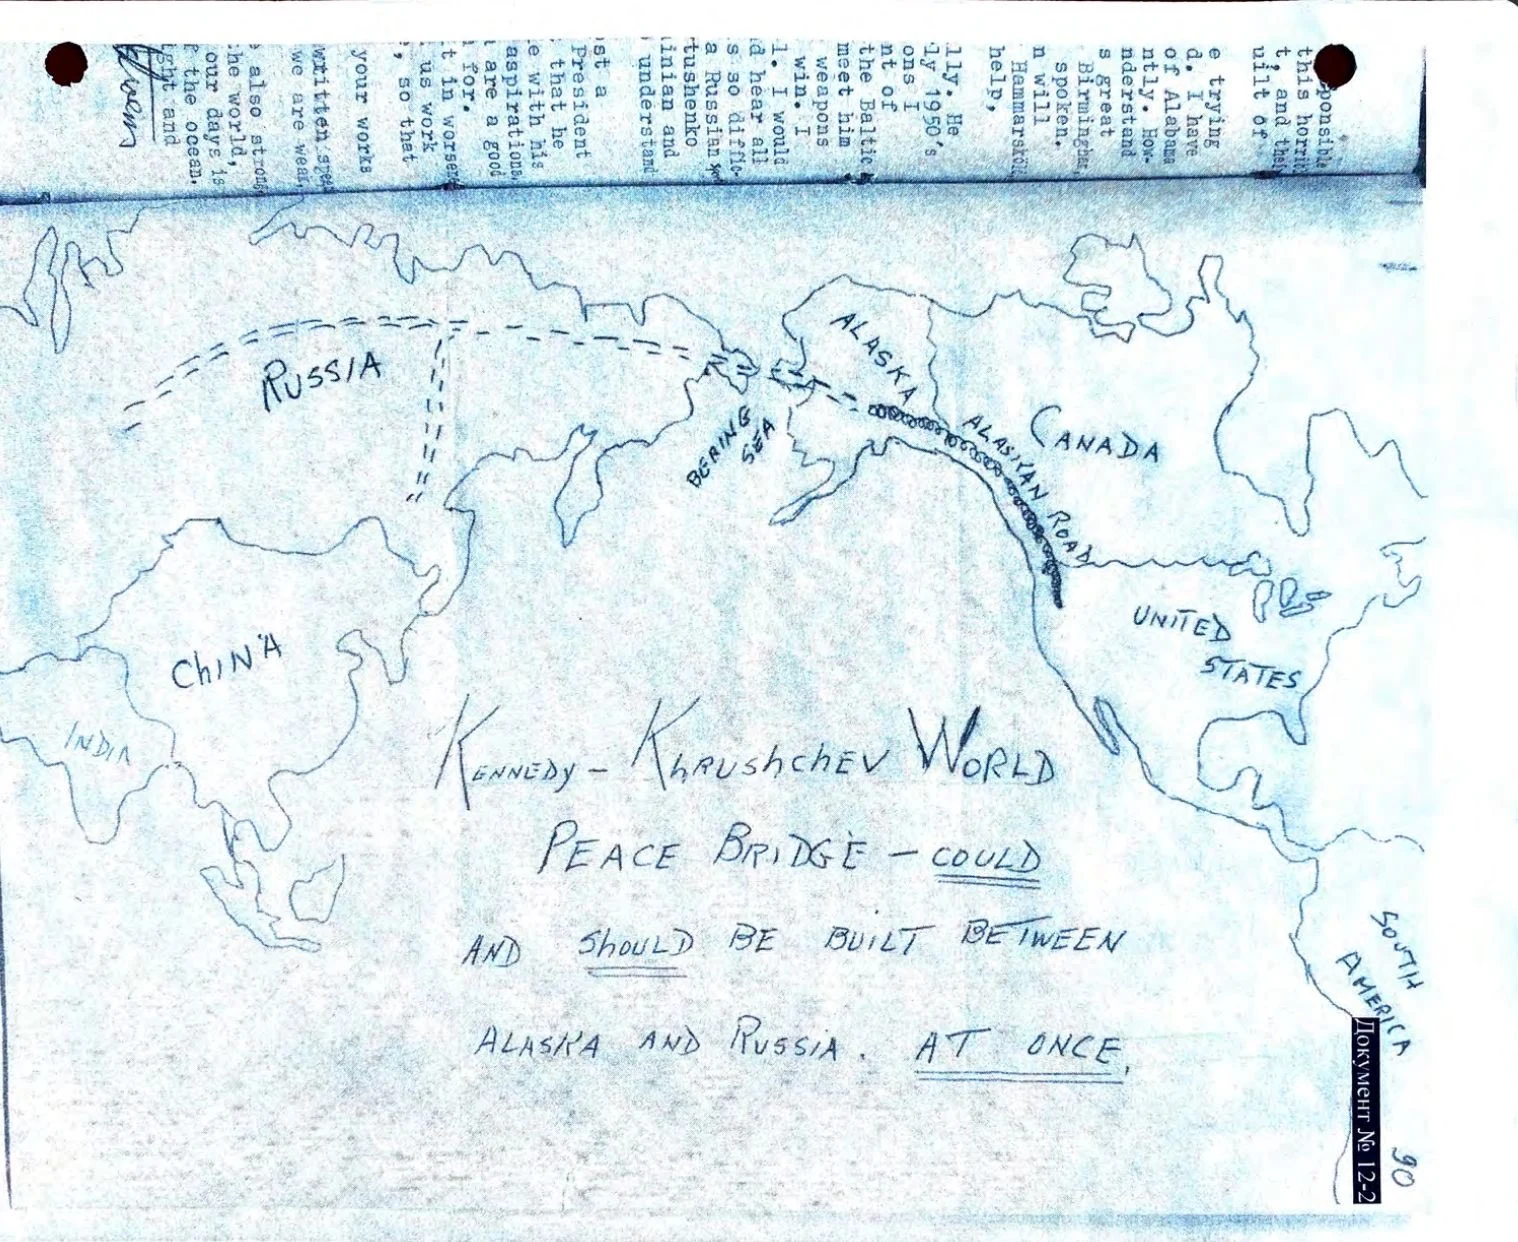 ponsible
this horrib
t, and thei
uilt of
e trying
d. I have
of Alabama
ntly. How-
nderstand
s great
Birmingham,
spoken.
n will
Hammarskjöl
help,
lly. He
ly 1950's
ons I
nt of
the Baltic
meet him
weapons
win. I
l. I would
d hear all
s so diffic-
a Russian
tushenko
inian and
understand
st a
President
that he
e with his
aspirations,
are a good
for.
t in worsen
us work
, so that
your works
written
we are wear
also strong
he world,
our days is
f the ocean.
ght and
RUSSIA
ALASKA
BERING
SEA
ALASKAN ROAD
CANADA
UNITED
STATES
CHINA
INDIA
KENNEDY – KHRUSHCHEV WORLD
PEACE BRIDGE – COULD
AND SHOULD BE BUILT BETWEEN
ALASKA AND RUSSIA. AT ONCE.
SOUTH
AMERICA
Документ № 12-2
90